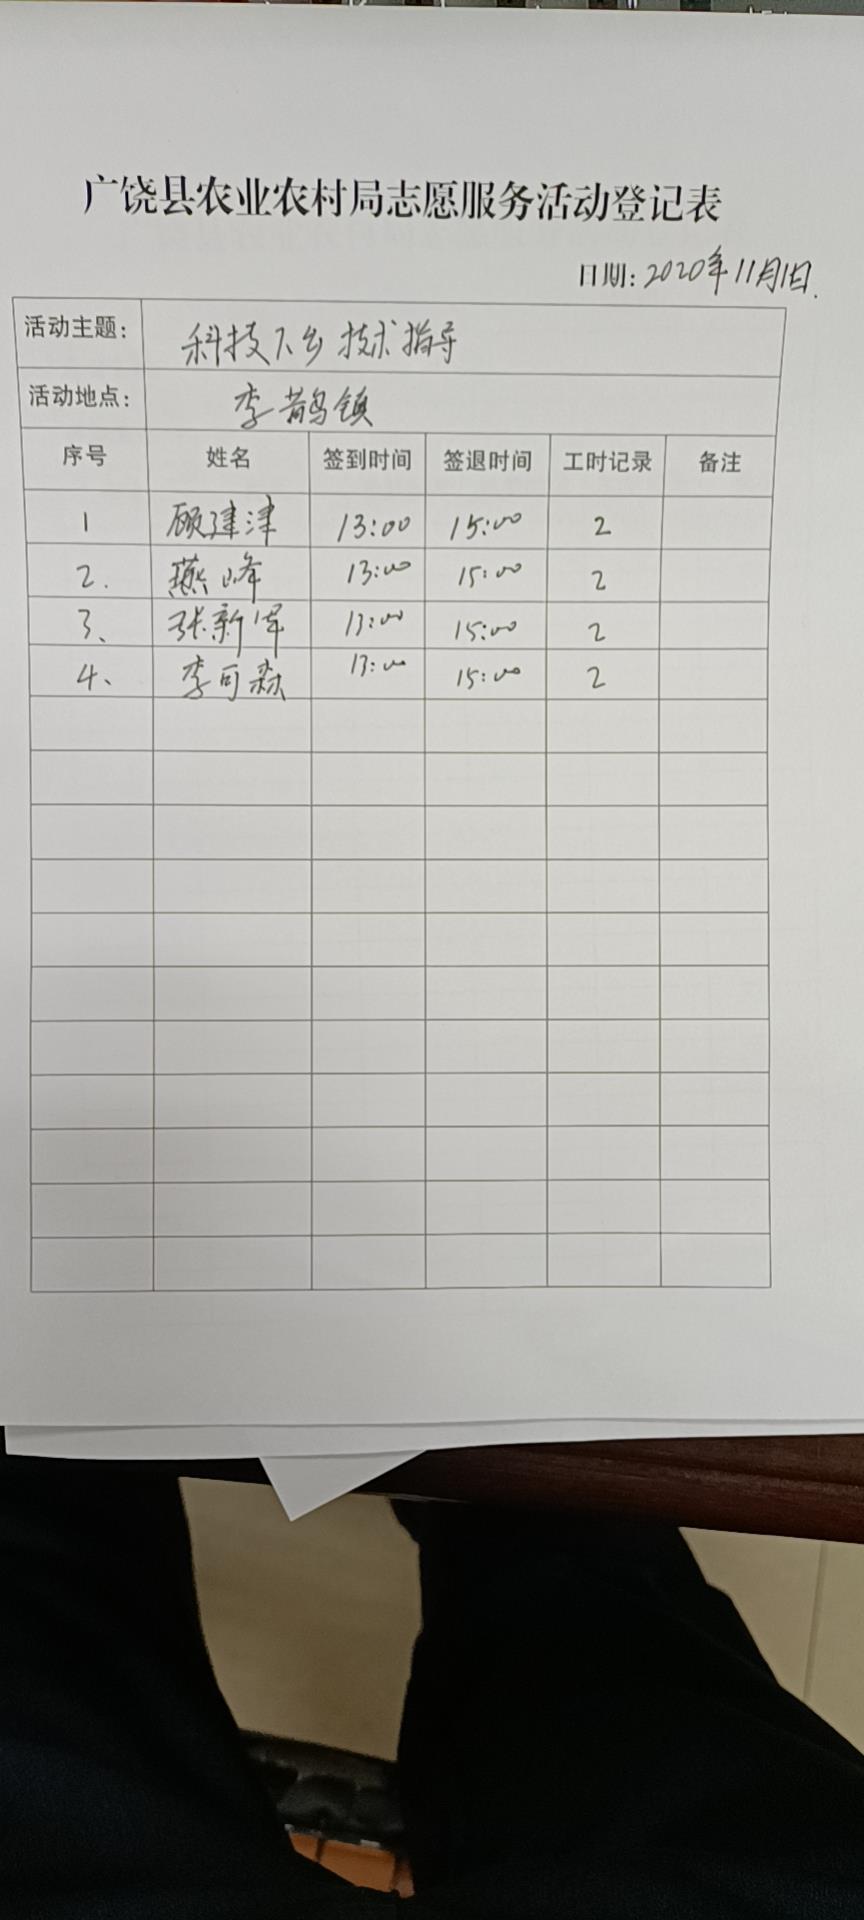 广饶县农业农村局志愿服务活动登记表
日期：2020年11月1日.
活动主题： 科技下乡 技术指导
活动地点： 李鹊镇
序号 姓名 签到时间 签退时间 工时记录 备注
1 顾建津 13:00 15:00 2
2. 燕峰 13:00 15:00 2
3、 张新军 13:00 15:00 2
4、 李可森 13:00 15:00 2